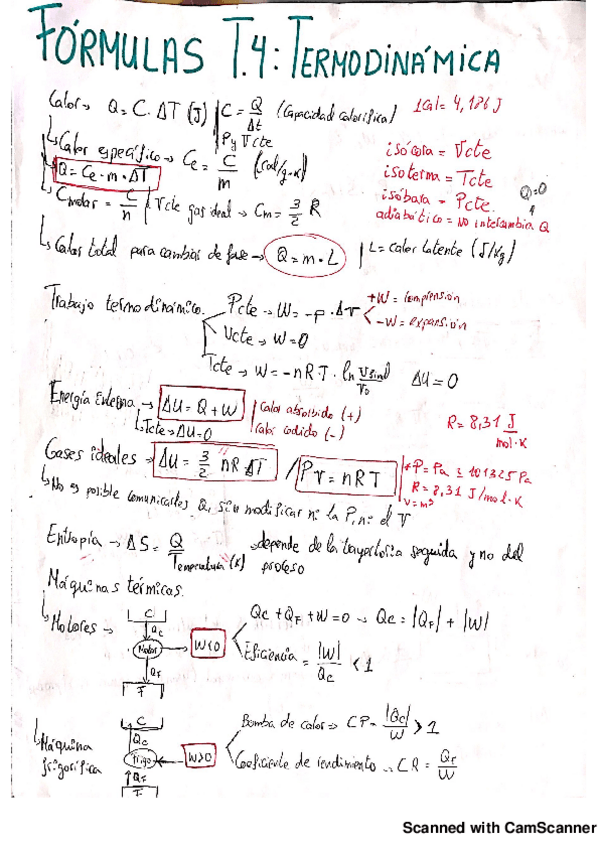 FÓRMULAS T.4: TERMODINÁMICA
Calor → Q = C · ΔT (J) | C = Q/Δt (Capacidad calorífica) 1 Cal = 4,186 J
P y V cte
↳ Calor específico → Ce = C/m (cal/g·K)
Q = Ce · m · ΔT
isócora = V cte
isoterma = T cte
isóbara = P cte.
Q=0
adiabático = no intercambia Q
C molar = C/n | V cte gas ideal → Cm = 3/2 R
↳ Calor total para cambios de fase → Q = m · L | L = calor latente (J/kg)
Trabajo termodinámico. P cte → W = -p · ΔV
+W = compresión
-W = expansión
V cte → W = 0
T cte → W = -nRT · ln Vfinal/V0 ΔU = 0
Energía interna → ΔU = Q + W | Calor absorbido (+)
Calor cedido (-)
↳ T cte → ΔU = 0
R = 8,31 J/mol·K
Gases ideales → ΔU = 3/2 nR ΔT / PV = nRT
* P = Pa 101325 Pa
R = 8,31 J/mol·K
V = m³
↳ No es posible comunicarles Q, sin modificar ni la P, ni el V
Entropía → ΔS = Q/Temperatura (K) → depende de la trayectoria seguida y no del
proceso
Máquinas térmicas.
↳ Motores →
C
Qc
Motor
W<0
QF
F
Qc + QF + W = 0 → Qc = |QF| + |W|
Eficiencia = |W|/Qc < 1
↳ Máquina
frigorífica
C
Qc
Frigo
W>0
QF
F
Bomba de calor → CP = |Qc|/W > 1
Coeficiente de rendimiento → CR = QF/W
Scanned with CamScanner